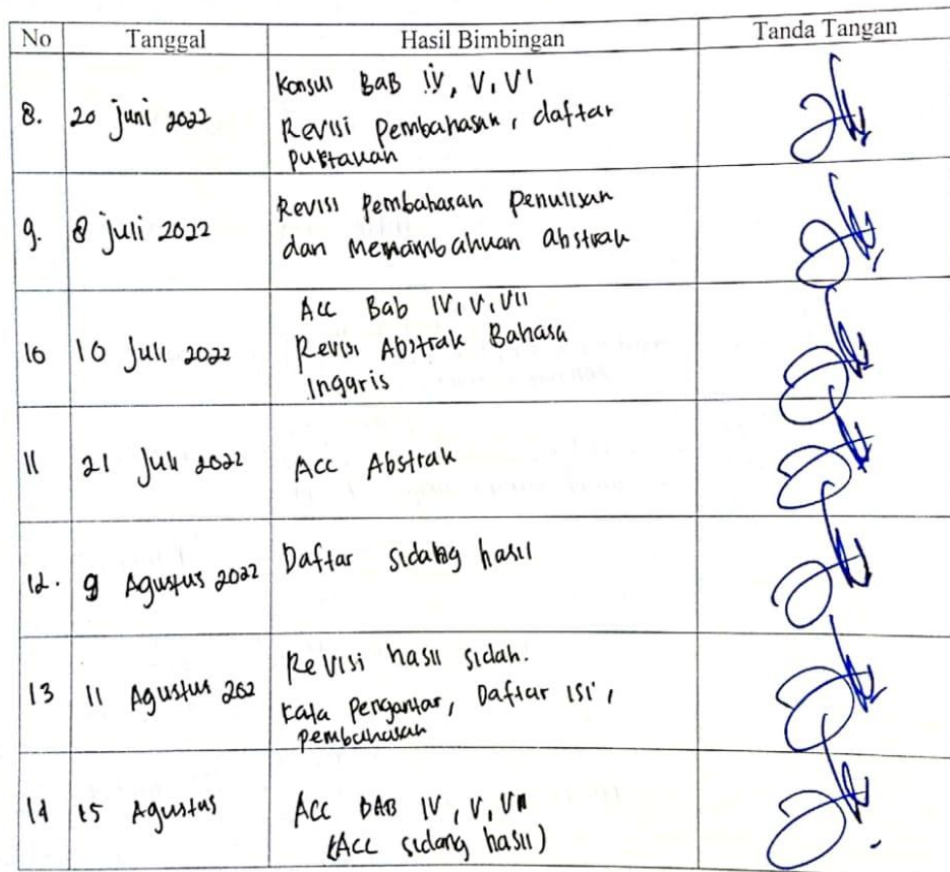 No Tanggal Hasil Bimbingan Tanda Tangan
8. 20 Juni 2022 Konsul BAB IV, V, VI
Revisi pembahasan, daftar
pustakaan
9. 8 Juli 2022 Revisi pembahasan penulisan
dan Menambahkan abstrak
10 10 Juli 2022 Acc Bab IV, V, VII
Revisi Abstrak Bahasa
Inggris
11 21 Juli 2022 Acc Abstrak
12. 9 Agustus 2022 Daftar sidang hasil
13 11 Agustus 202 Revisi hasil sidah.
Kata Pengantar, Daftar isi,
pembahasan
14 15 Agustus Acc BAB IV, V, VII
(Acc sidang hasil)